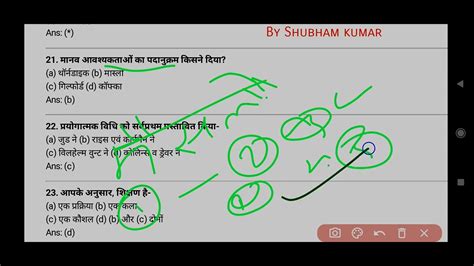 Ans: (*)
BY SHUBHAM KUMAR
21. मानव आवश्यकताओं का पदानुक्रम किसने दिया?
(a) थॉर्नडाइक (b) मास्लो
(c) गिल्फोर्ड (d) कॉफ्का
Ans: (b)
22. प्रयोगात्मक विधि को सर्वप्रथम प्रस्तावित किया-
(a) जुड ने (b) राइस एवं कार्नमैन ने
(c) विलहेल्म वुन्ट ने (d) कोलिन्स व ड्रेवर ने
Ans: (c)
23. आपके अनुसार, शिक्षण है-
(a) एक प्रक्रिया (b) एक कला
(c) एक कौशल (d) (b) और (c) दोनों
Ans: (d)